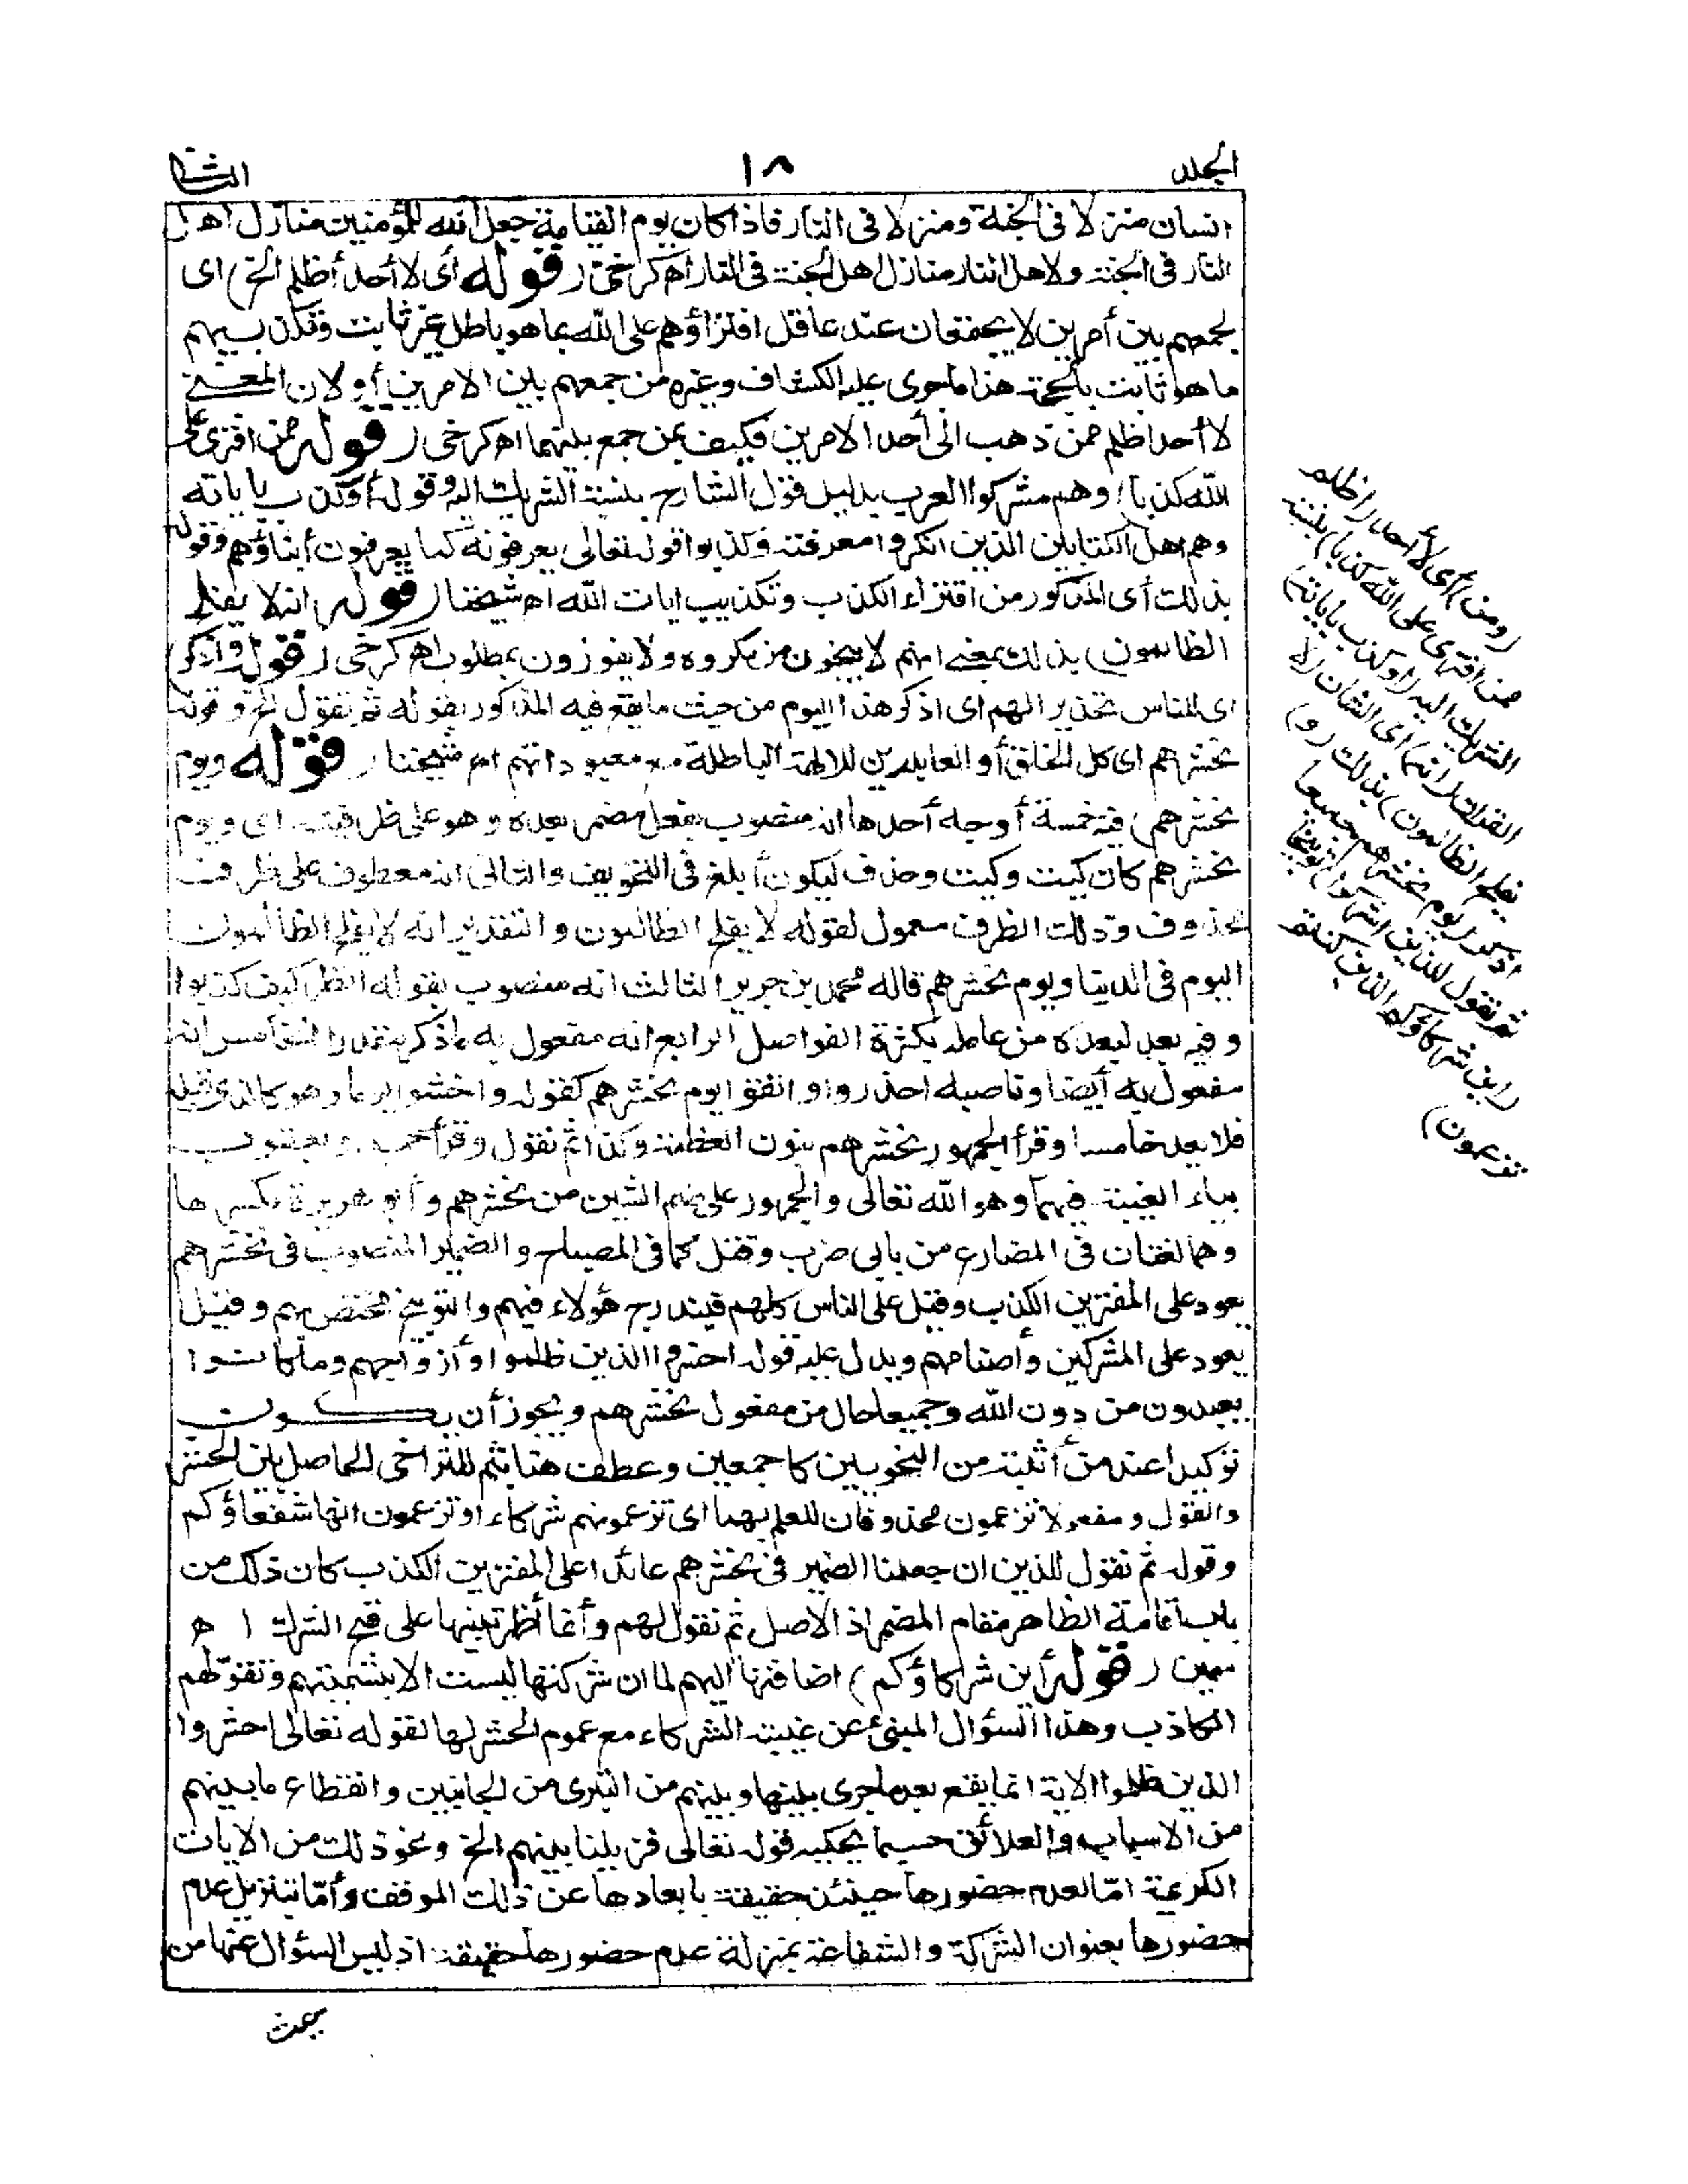 الجلد ١٨ الثانى
انسان منزلا فى الجنة ومنزلا فى النار فاذا كان يوم القيامة جعل الله للمؤمنين منازل اهل
النار فى الجنة ولاهل النار منازل اهل الجنة فى النار اه كرخى (قوله أى لا أحد أظلم الخ) اى
لجمعهم بين أمرين لا يجتمعان عند عاقل افتراؤهم على الله بما هو باطل غير ثابت وتكذيبهم
ما هو ثابت بالحجة هذا ما جرى عليه الكشاف وغيره من جمعهم بين الامرين أو لان المعنى
لا أحد اظلم ممن ذهب الى أحد الامرين فكيف بمن جمع بينهما اه كرخى (قوله ممن افترى على
الله كذبا) وهم مشركوا العرب بدليل قول الشارح بنسبة الشريك اليه وقوله أو كذب باياته
وهم اهل الكتابين الذين انكروا معرفته وكذبوا قوله تعالى يعرفونه كما يعرفون أبناؤهم وقوله
بذلك أى المذكور من افتراء الكذب وتكذيب ايات الله اه شيخنا (قوله انه لا يفلح
الظالمون) بذلك بمعنى انهم لا ينجون من مكروه ولا يفوزون بمطلوب اه كرخى (قوله واذكر)
اى للناس تحذيرا لهم اى اذكر هذا اليوم من حيث ما يقع فيه المذكور بقوله ثم نقول الخ وقوله
نحشرهم اى كل الخلق أو العابدين للالهة الباطلة مع معبوداتهم اه شيخنا (قوله ويوم
نحشرهم) فيه خمسة أوجه أحدها انه منصوب بفعل مضمر بعده وهو على ظرفيته اى ويوم
نحشرهم كان كيت وكيت وحذف ليكون أبلغ فى التخويف والثانى انه معطوف على ظرف
محذوف وذلك الظرف معمول لقوله لا يفلح الظالمون والتقدير انه لا يفلح الظالمون
اليوم فى الدنيا ويوم نحشرهم قاله محمد بن جرير الثالث انه منصوب بقوله انظر كيف كذبوا
وفيه بعد لبعده من عامله بكثرة الفواصل الرابع انه مفعول به باذكر مقدرا الخامس انه
مفعول به أيضا وناصبه احذروا واتقوا يوم نحشرهم كقوله واخشوا يوما وهو كالذى قبله
فلا يعد خامسا وقرأ الجمهور نحشرهم بنون العظمة وكذا ثم نقول وقرأ حميد ويعقوب
بياء الغيبة فيهما وهو الله تعالى والجمهور على ضم الشين من نحشرهم وأبو هريرة بكسرها
وهما لغتان فى المضارع من بابى ضرب وقتل كما فى المصباح والضمير المنصوب فى نحشرهم
يعود على المفترين الكذب وقيل على الناس كلهم فيندرج هؤلاء فيهم والتوبيخ مختص بهم وقيل
يعود على المشركين وأصنامهم ويدل عليه قوله احشروا الذين ظلموا وأزواجهم وما كانوا
يعبدون من دون الله وجميعا حال من مفعول نحشرهم ويجوز أن يكون
توكيدا عند من أثبته من النحويين كاجمعين وعطف هنا بثم للتراخى الحاصل بين الحشر
والقول ومفعولا تزعمون محذوفان للعلم بهما اى تزعمونهم شركاء او تزعمون انها شفعاؤكم
وقوله ثم نقول للذين ان جعلنا الضمير فى نحشرهم عائدا على المفترين الكذب كان ذلك من
باب اقامة الظاهر مقام المضمر اذ الاصل ثم نقول لهم وأنما أظهر تنبيها على قبح الشرك ا ه
سمين (قوله أين شركاؤكم) اضافتها اليهم لما ان شركتها ليست الا بتسميتهم وتقولهم
الكاذب وهذا السؤال المبنئ عن غيبة الشركاء مع عموم الحشر لها لقوله تعالى احشروا
الذين ظلموا الاية انما يقع بعد ما جرى بينها وبينهم من التبرى من الجانبين وانقطاع ما بينهم
من الاسباب والعلائق حسبما يحكيه قوله تعالى فزيلنا بينهم الخ ونحو ذلك من الايات
الكريمة امّا لعدم حضورها حينئذ حقيقة بابعادها عن ذلك الموقف وأمّا بتنزيل عدم
حضورها بعنوان الشركة والشفاعة بمنزلة عدم حضورها حقيقة اذ ليس السؤال عنها من
(ومن) أى لا أحد (اظلم
ممن افترى على الله كذبا) بنسبة
الشريك اليه (او كذب باياته)
القرآن (انه) اى الشان (لا
يفلح الظالمون) بذلك (و)
اذكر (يوم نحشرهم جميعا
ثم نقول للذين اشركوا) توبيخا
(اين شركاؤكم الذين كنتم
تزعمون)